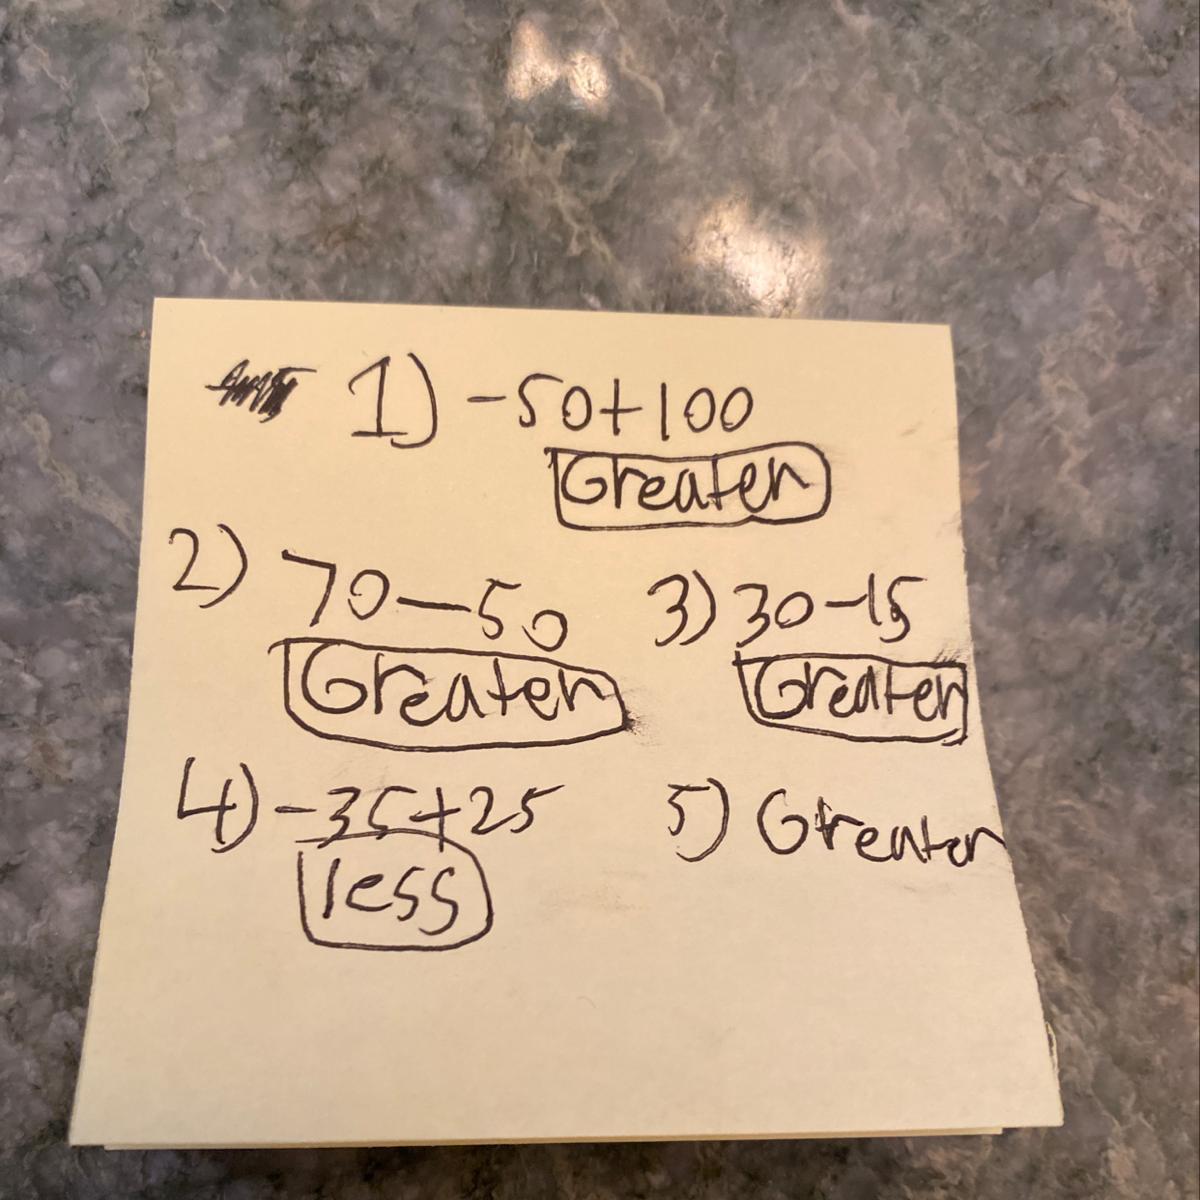 1) -50+100
Greater
2) 70-50
Greater
3) 30-15
Greater
4) -35+25
less
5) Greater